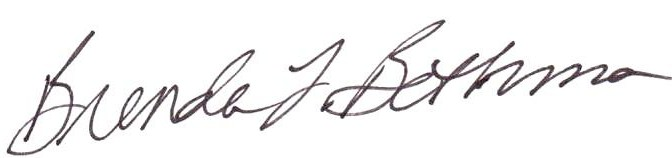 Brenda L. Bethman